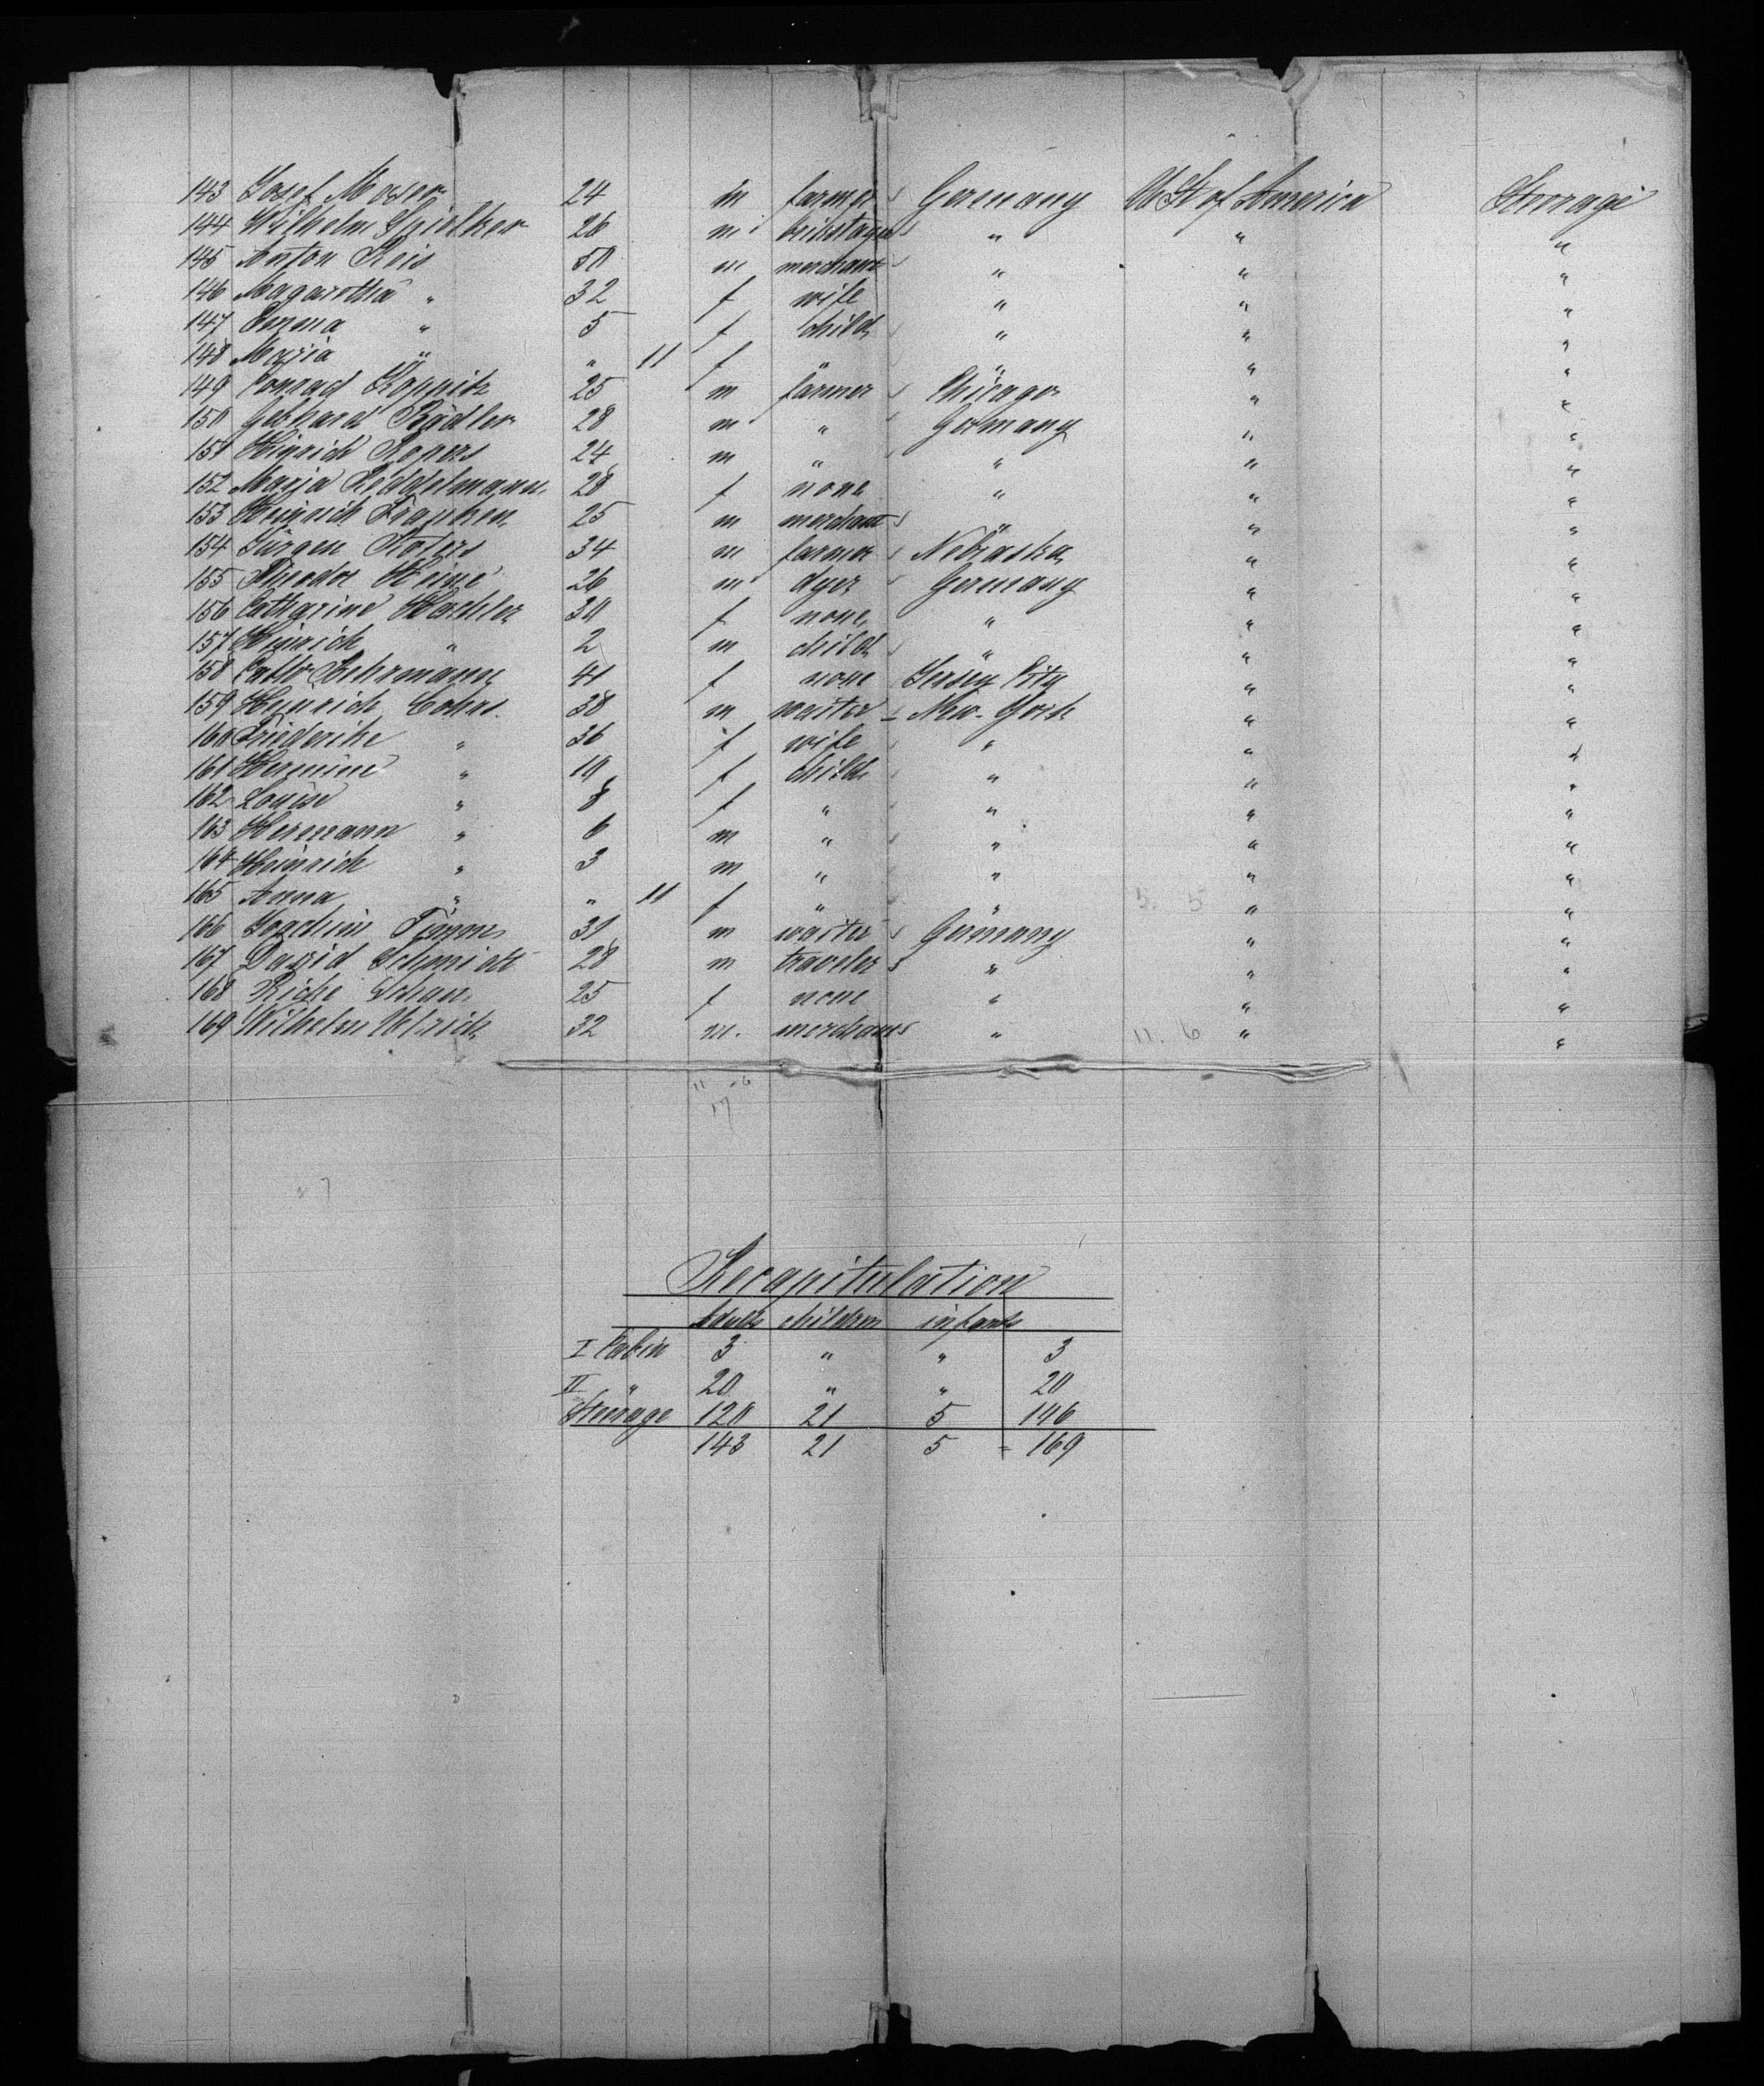 143 Josef Moser 24 m farmer Germany U St of America Steerage
144 Wilhelm 26 m " " "
145 Anton Reis 50 m merchant " " "
146 Magarotha " 32 f wife " " "
147 Emma " 5 f child " " "
148 Maria " " 11 f " " " "
149 Conrad Koppitz 25 m farmer Chicago " "
150 Gebhard Rädler 28 m " Germany " "
151 Hinrich Kopers 24 m " " " "
152 Marja 28 f none " " "
153 Heinrich 25 m merchant " " "
154 Jürgen 34 m farmer Nebraska " "
155 Theodor Heine 26 m dyer Germany " "
156 Catharine 30 f none " " "
157 Hinrich " 2 m child " " "
158 Cath Behrmann 41 f none Jersey City " "
159 Heinrich Cohrs 38 m waiter New-York " "
160 Friederike " 36 f wife " " "
161 Hermine " 10 f child " " "
162 Louise " 8 f " " " "
163 Hermann " 6 m " " " "
164 Heinrich " 3 m " " " "
165 Anna " " 11 f " " " "
166 Joachim Timm 31 m waiter Germany " "
167 David Schmidt 28 m traveler " " "
168 Riche 25 f none " " "
169 Wilhelm Ulrich 32 m. merchant " 11. 6 " "
17
Recapitulation
Adults children infants
I Cabin 3 " " 3
II " 20 " " 20
Steerage 120 21 5 146
143 21 5 = 169